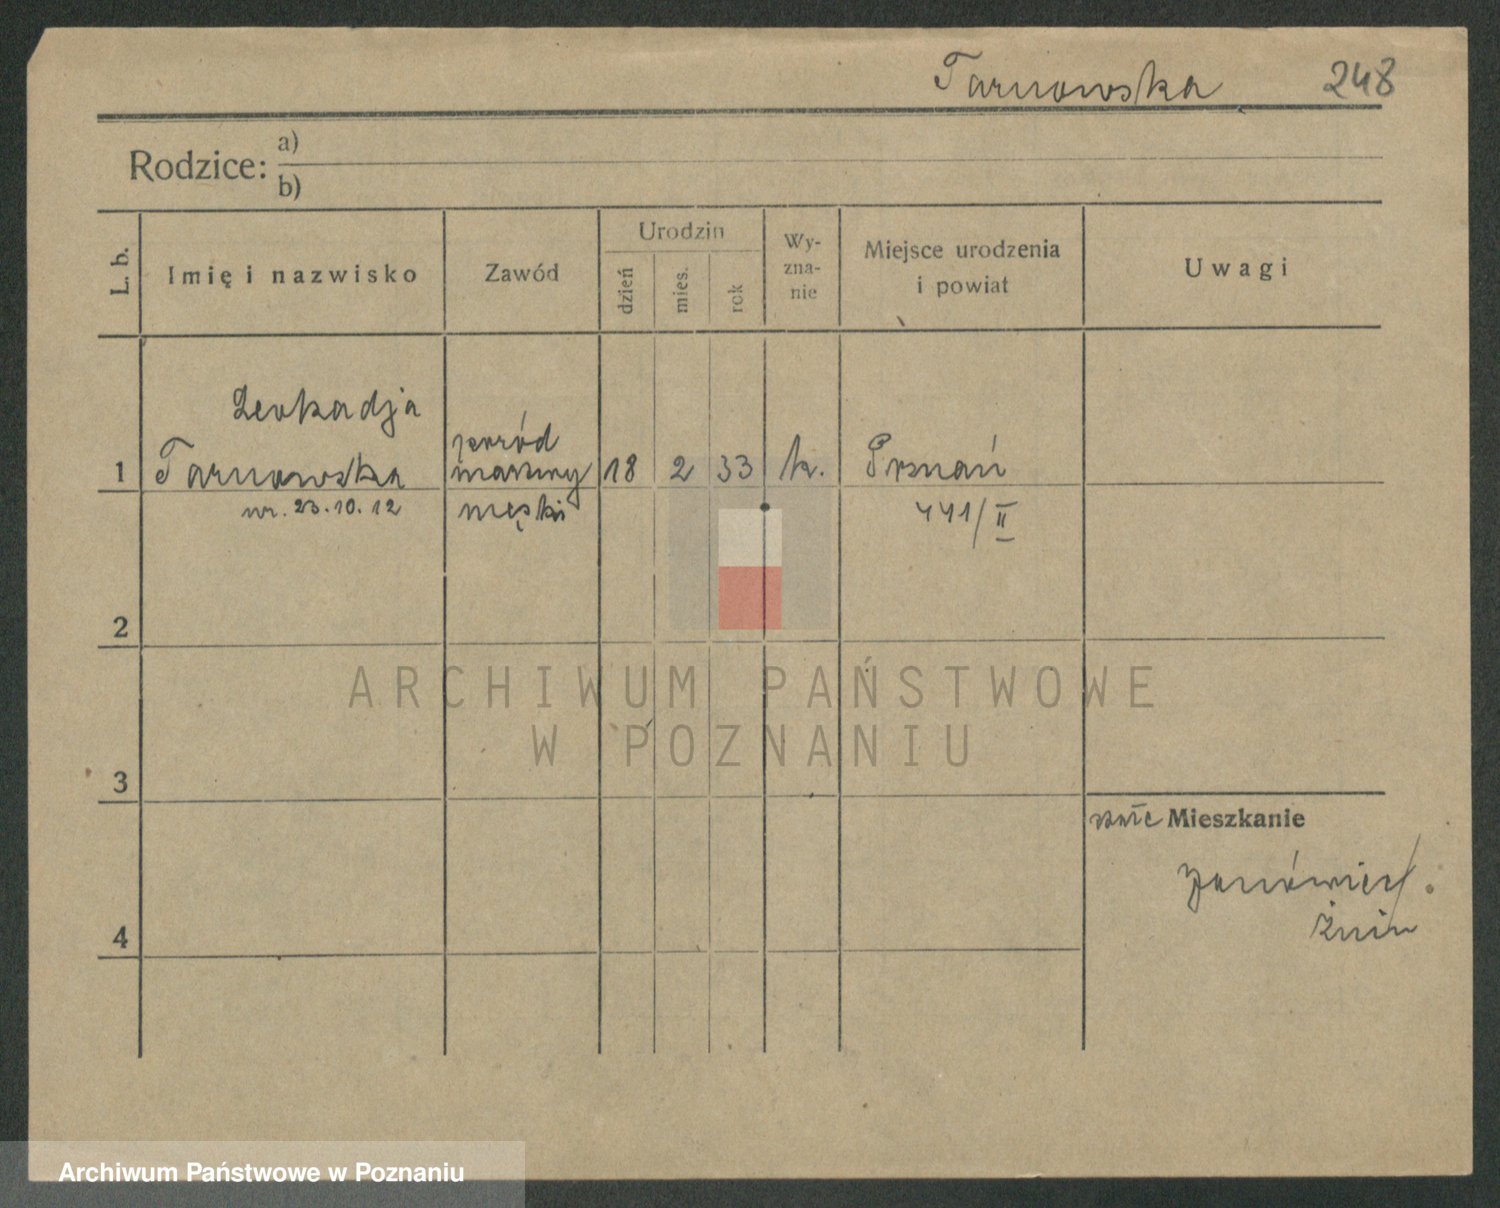 Tarnowska 248
Rodzice: a)
b)
L. b. Imię i nazwisko Zawód Urodzin dzień mies. rok Wy-zna-nie Miejsce urodzenia i powiat Uwagi
Leokadja
1 Tarnowska poród martwy męski 18 2 33 k. Poznań
ur. 23.10.12 441/II
2
3
4
stałe Mieszkanie
Janówiec
Żnin
ARCHIWUM PAŃSTWOWE
W POZNANIU
Archiwum Państwowe w Poznaniu